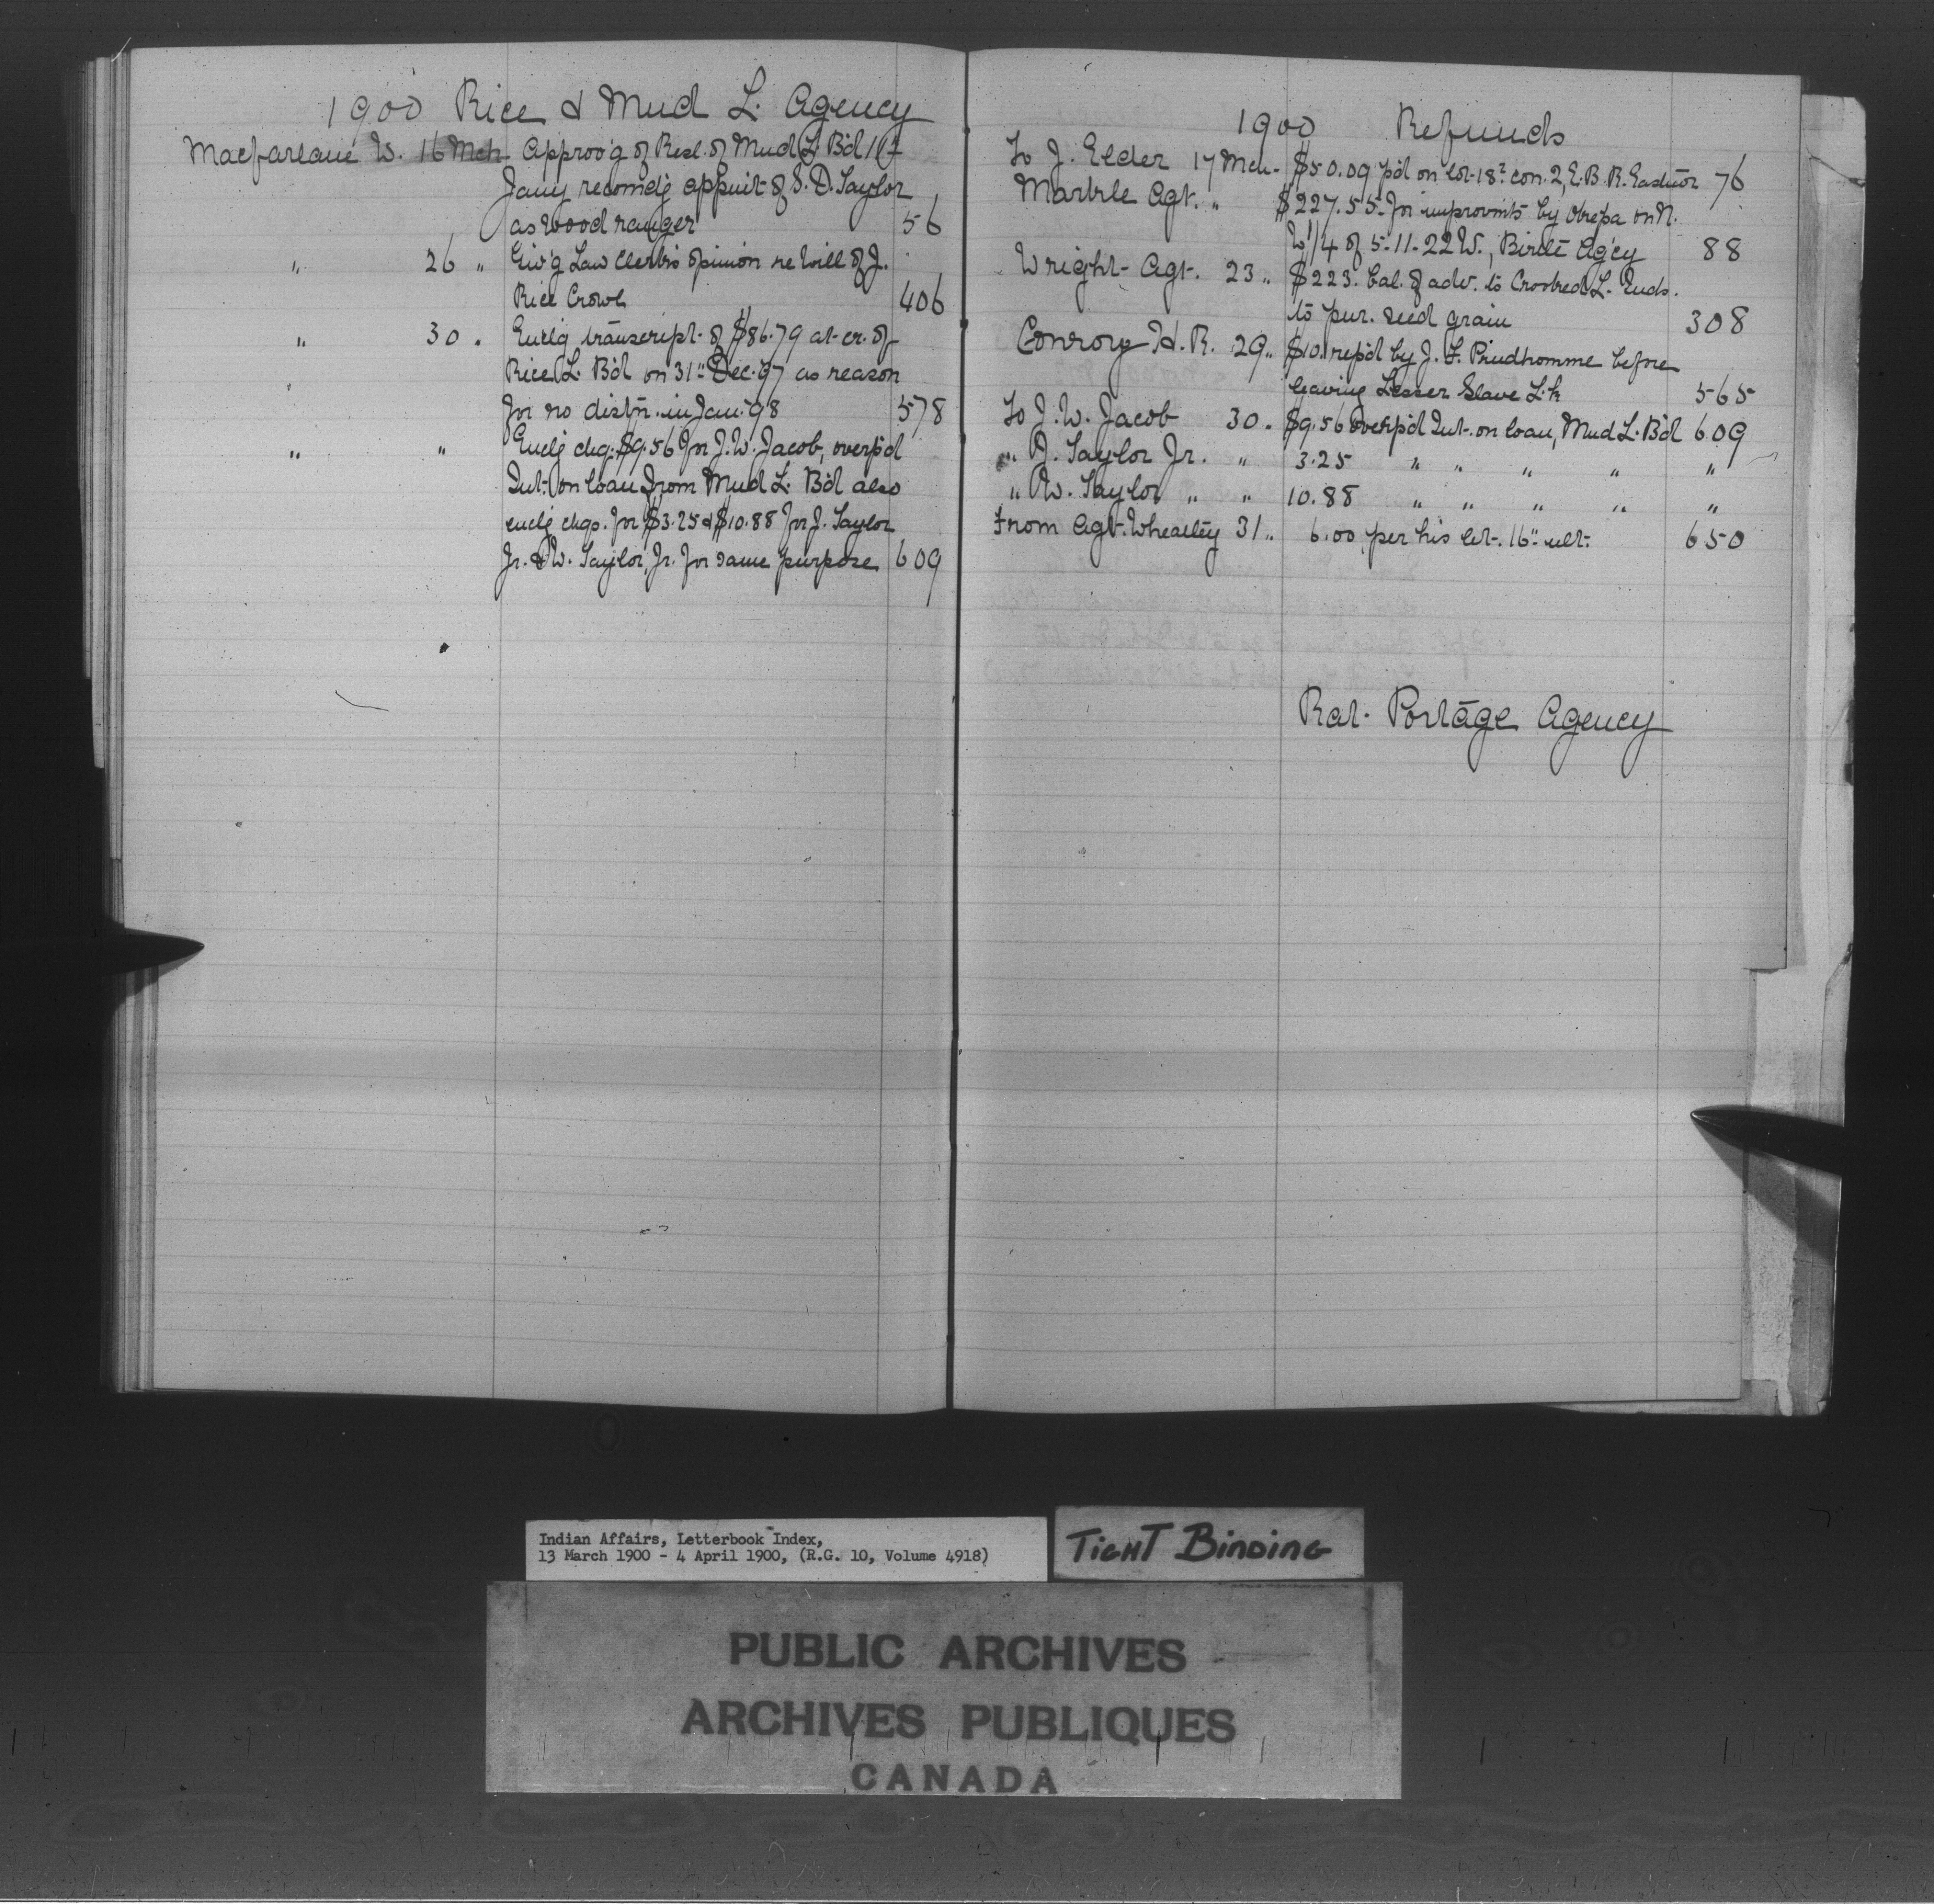 1900 Rice & Mud L. Agency
Macfarlane W. 16 Mch Approv'g of Resl. of Mud L. B'd 1
Jany recomd'g appmt of S. D. Taylor
as Wood ranger 56
" 26 " Giv'g Law Clerk's opinion re Will of J.
Rice Crowe 406
" 30 . Encl'g transcript of $86.79 at cr. of
Rice L. B'd on 31" Dec. 97 as reason
for no distn. in Jan. 98 578
" " Encl'g chq. $9.56 for J. W. Jacob, overp'd
Int. on loan from Mud L. B'd also
encl'g chqs. for $3.25 & $10.88 for J. Taylor
Jr. & W. Taylor, Jr. for same purpose 609
1900 Refunds
To J. Elder 17 Mch $50.09 p'd on lot 18 con. 2, E. B. R. Eastnor 76
Markle Agt. " $227.55 for improvmts by on N.
W 1/4 of 5-11-22 W., Birtle Ag'cy 88
Wright Agt. 23 " $223. bal. of adv. to Crooked L. Inds.
to pur. seed grain 308
Conroy H. R. 29 " $10. rep'd by J. F. Prudhomme before
leaving Lesser Slave L. 565
To J. W. Jacob 30 . $9.56 overp'd Int. on loan, Mud L. B'd 609
" J. Taylor Jr. " 3.25 " " " " "
" W. Taylor " " 10.88 " " " " "
From Agt. Wheatley 31 " 6.00, per his let. 16" ult. 650
Rat Portage Agency
Indian Affairs, Letterbook Index,
13 March 1900 - 4 April 1900, (R.G. 10, Volume 4918)
TIGHT BINDING
PUBLIC ARCHIVES
ARCHIVES PUBLIQUES
CANADA